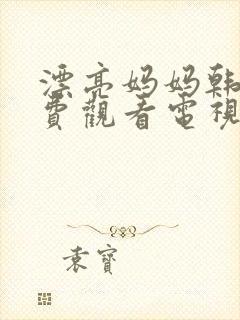 漂亮妈妈韩
費觀看電視
袁寶